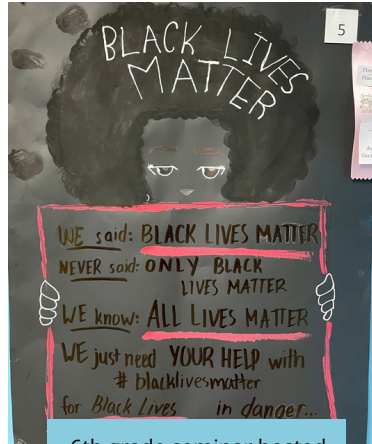 BLACK LIVES
MATTER
5
WE said: BLACK LIVES MATTER
NEVER said: ONLY BLACK
LIVES MATTER
WE know: ALL LIVES MATTER
WE just need YOUR HELP with
# blacklivesmatter
for Black Lives in danger...